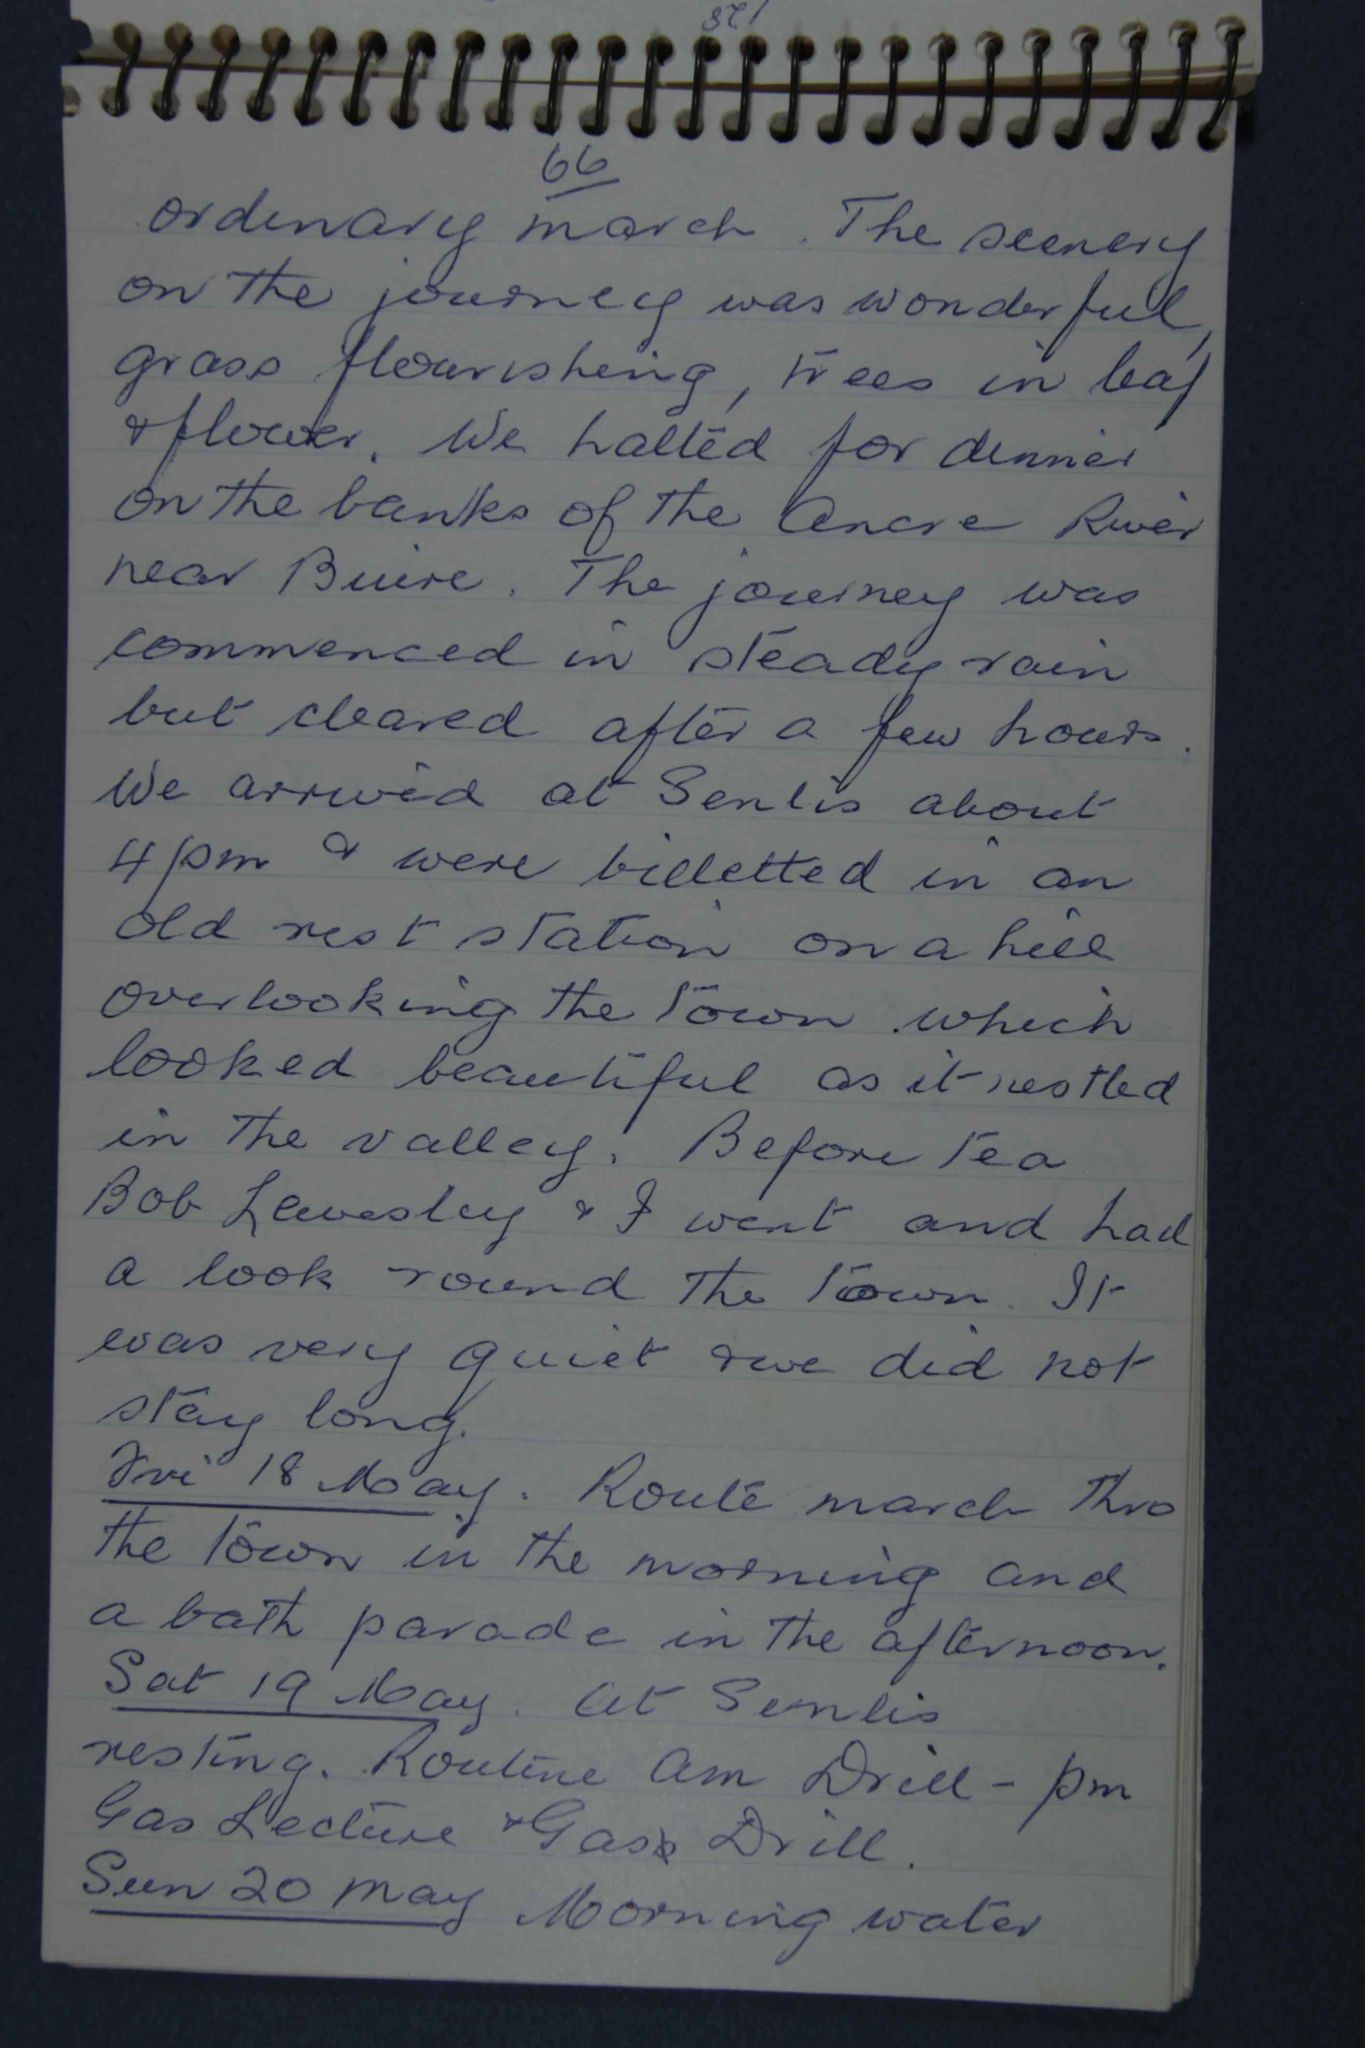 66
ordinary march. The scenery
on the journey was wonderful,
grass flourishing, trees in leaf
& flower. We halted for dinner
on the banks of the Ancre River
near Buire. The journey was
commenced in steady rain
but cleared after a few hours.
We arrived at Senlis about
4 pm & were billetted in an
old rest station on a hill
overlooking the town which
looked beautiful as it nestled
in the valley. Before tea
Bob Leuesley & I went and had
a look round the town. It
was very quiet & we did not
stay long.
Fri 18 May. Route march thro
the town in the morning and
a bath parade in the afternoon.
Sat 19 May. At Senlis
resting. Routine am Drill - pm
Gas Lecture & Gas Drill.
Sun 20 May Morning water